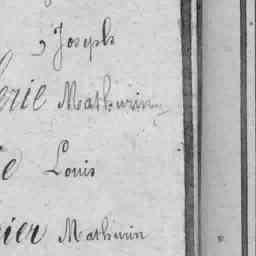 , Joseph
erie Mathurin
e Louis
ier Mathurin